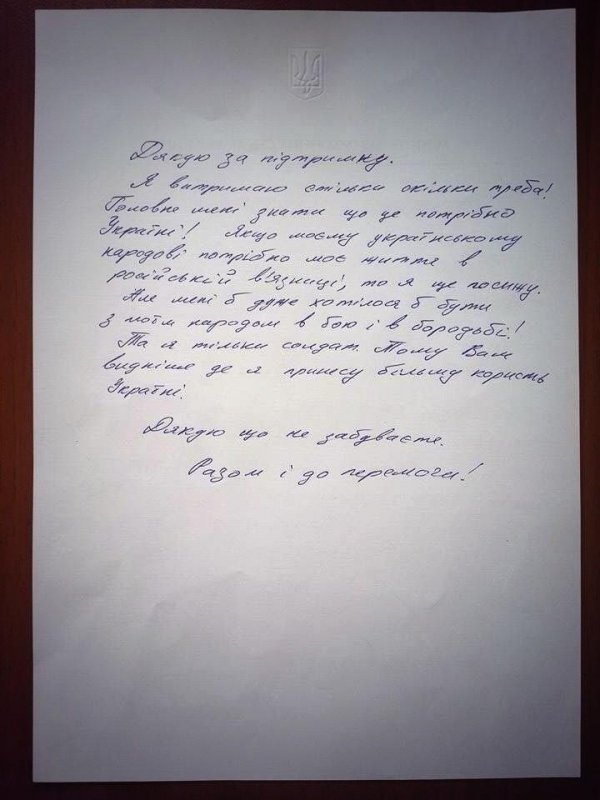 Дякую за підтримку.
Я витримаю стільки скільки треба!
Головне мені знати що це потрібно
Україні! Якщо моєму українському
народові потрібно моє життя в
російській в'язниці, то я ще посижу.
Але мені б дуже хотілося б бути
з моїм народом в бою і в бородьбі!
Та я тільки солдат. Тому Вам
видніше де я принесу більшу користь
Україні.
Дякую що не забуваєте.
Разом і до перемоги!